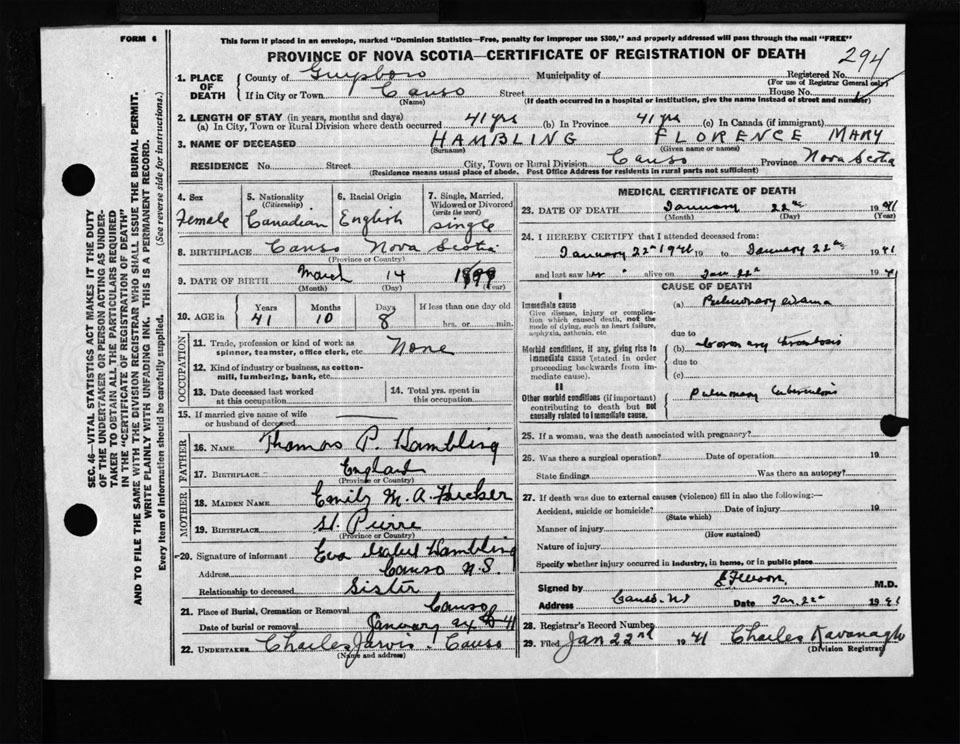 FORM 6
This form if placed in an envelope, marked "Dominion Statistics—Free, penalty for improper use $300," and properly addressed will pass through the mail "FREE"
PROVINCE OF NOVA SCOTIA—CERTIFICATE OF REGISTRATION OF DEATH
294
1. PLACE OF DEATH
County of Guysboro Municipality of Registered No.
(For use of Registrar General only)
If in City or Town Canso Street House No.
(Name) (If death occurred in a hospital or institution, give the name instead of street and number)
2. LENGTH OF STAY (in years, months and days)
(a) In City, Town or Rural Division where death occurred 41 yrs (b) In Province 41 yrs (c) In Canada (if immigrant)
3. NAME OF DECEASED HAMBLING FLORENCE MARY
(Surname) (Given name or names)
RESIDENCE No. Street City, Town or Rural Division Canso Province Nova Scotia
(Residence means usual place of abode. Post Office Address for residents in rural parts not sufficient)
4. Sex Female
5. Nationality (Citizenship) Canadian
6. Racial Origin English
7. Single, Married, Widowed or Divorced (write the word) Single
8. BIRTHPLACE Canso Nova Scotia
(Province or Country)
9. DATE OF BIRTH March 14 1899
(Month) (Day) (Year)
10. AGE in Years 41 Months 10 Days 8 If less than one day old hrs. or min.
OCCUPATION
11. Trade, profession or kind of work as spinner, teamster, office clerk, etc. None
12. Kind of industry or business, as cotton-mill, lumbering, bank, etc.
13. Date deceased last worked at this occupation
14. Total yrs. spent in this occupation
15. If married give name of wife or husband of deceased
FATHER
16. NAME Thomas P. Hambling
17. BIRTHPLACE England
(Province or Country)
MOTHER
18. MAIDEN NAME Emily M. A. Hicker
19. BIRTHPLACE St. Pierre
(Province or Country)
20. Signature of informant Eva Isabel Hambling
Address Canso N.S.
Relationship to deceased Sister
21. Place of Burial, Cremation or Removal Canso
Date of burial or removal January 41
22. UNDERTAKER Charles Jarvis - Canso
(Name and address)
MEDICAL CERTIFICATE OF DEATH
23. DATE OF DEATH January 22nd 1941
(Month) (Day) (Year)
24. I HEREBY CERTIFY that I attended deceased from:
January 22nd 1941 19 to January 22nd 1941
and last saw her alive on Jan. 22nd 1941
CAUSE OF DEATH
I
Immediate cause
Give disease, injury or complication which caused death, not the mode of dying, such as heart failure, asphyxia, asthenia, etc
(a) Pulmonary edema
due to
Morbid conditions, if any, giving rise to immediate cause (stated in order proceeding backwards from immediate cause).
(b) Coronary thrombosis
due to
(c)
II
Other morbid conditions (if important) contributing to death but not causally related to immediate cause.
Pulmonary tuberculosis
25. If a woman, was the death associated with pregnancy?
26. Was there a surgical operation? Date of operation 19
State findings Was there an autopsy?
27. If death was due to external causes (violence) fill in also the following:—
Accident, suicide or homicide? Date of injury 19
(State which)
Manner of injury
(How sustained)
Nature of injury
Specify whether injury occurred in industry, in home, or in public place
Signed by M.D.
Address Canso. NS Date Jan. 22nd 1941
28. Registrar's Record Number
29. Filed Jan 22nd 1941 Charles Kavanagh
(Division Registrar)
SEC. 46—VITAL STATISTICS ACT MAKES IT THE DUTY
OF THE UNDERTAKER OR PERSON ACTING AS UNDER-
TAKER TO OBTAIN ALL THE PARTICULARS REQUIRED
IN THE "CERTIFICATE OF REGISTRATION OF DEATH"
AND TO FILE THE SAME WITH THE DIVISION REGISTRAR WHO SHALL ISSUE THE BURIAL PERMIT.
WRITE PLAINLY WITH UNFADING INK. THIS IS A PERMANENT RECORD.
Every item of information should be carefully supplied. (See reverse side for instructions.)